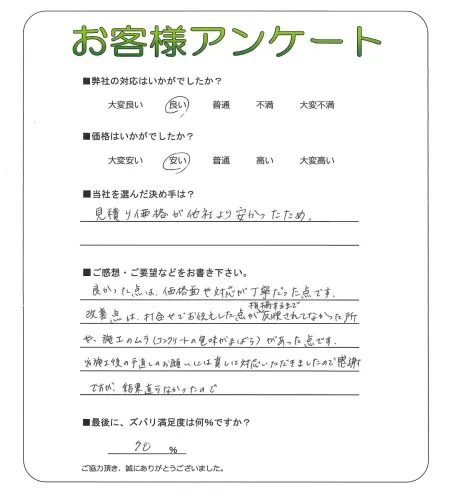 お客様アンケート
■弊社の対応はいかがでしたか？
大変良い 良い 普通 不満 大変不満
■価格はいかがでしたか？
大変安い 安い 普通 高い 大変高い
■当社を選んだ決め手は？
見積り価格が他社より安かったため。
■ご感想・ご要望などをお書き下さい。
良かった点は、価格面や対応が丁寧だった点です。
指摘するまで
改善点は、打合せでお伝えした点が反映されてなかった所
や、施工のムラ(コンクリートの色味がまばら)があった点です。
施工後の手直しのお願いには真しに対応いただきましたので感謝
ですが、結果直らなかったので
■最後に、ズバリ満足度は何％ですか？
70 ％
ご協力頂き、誠にありがとうございました。